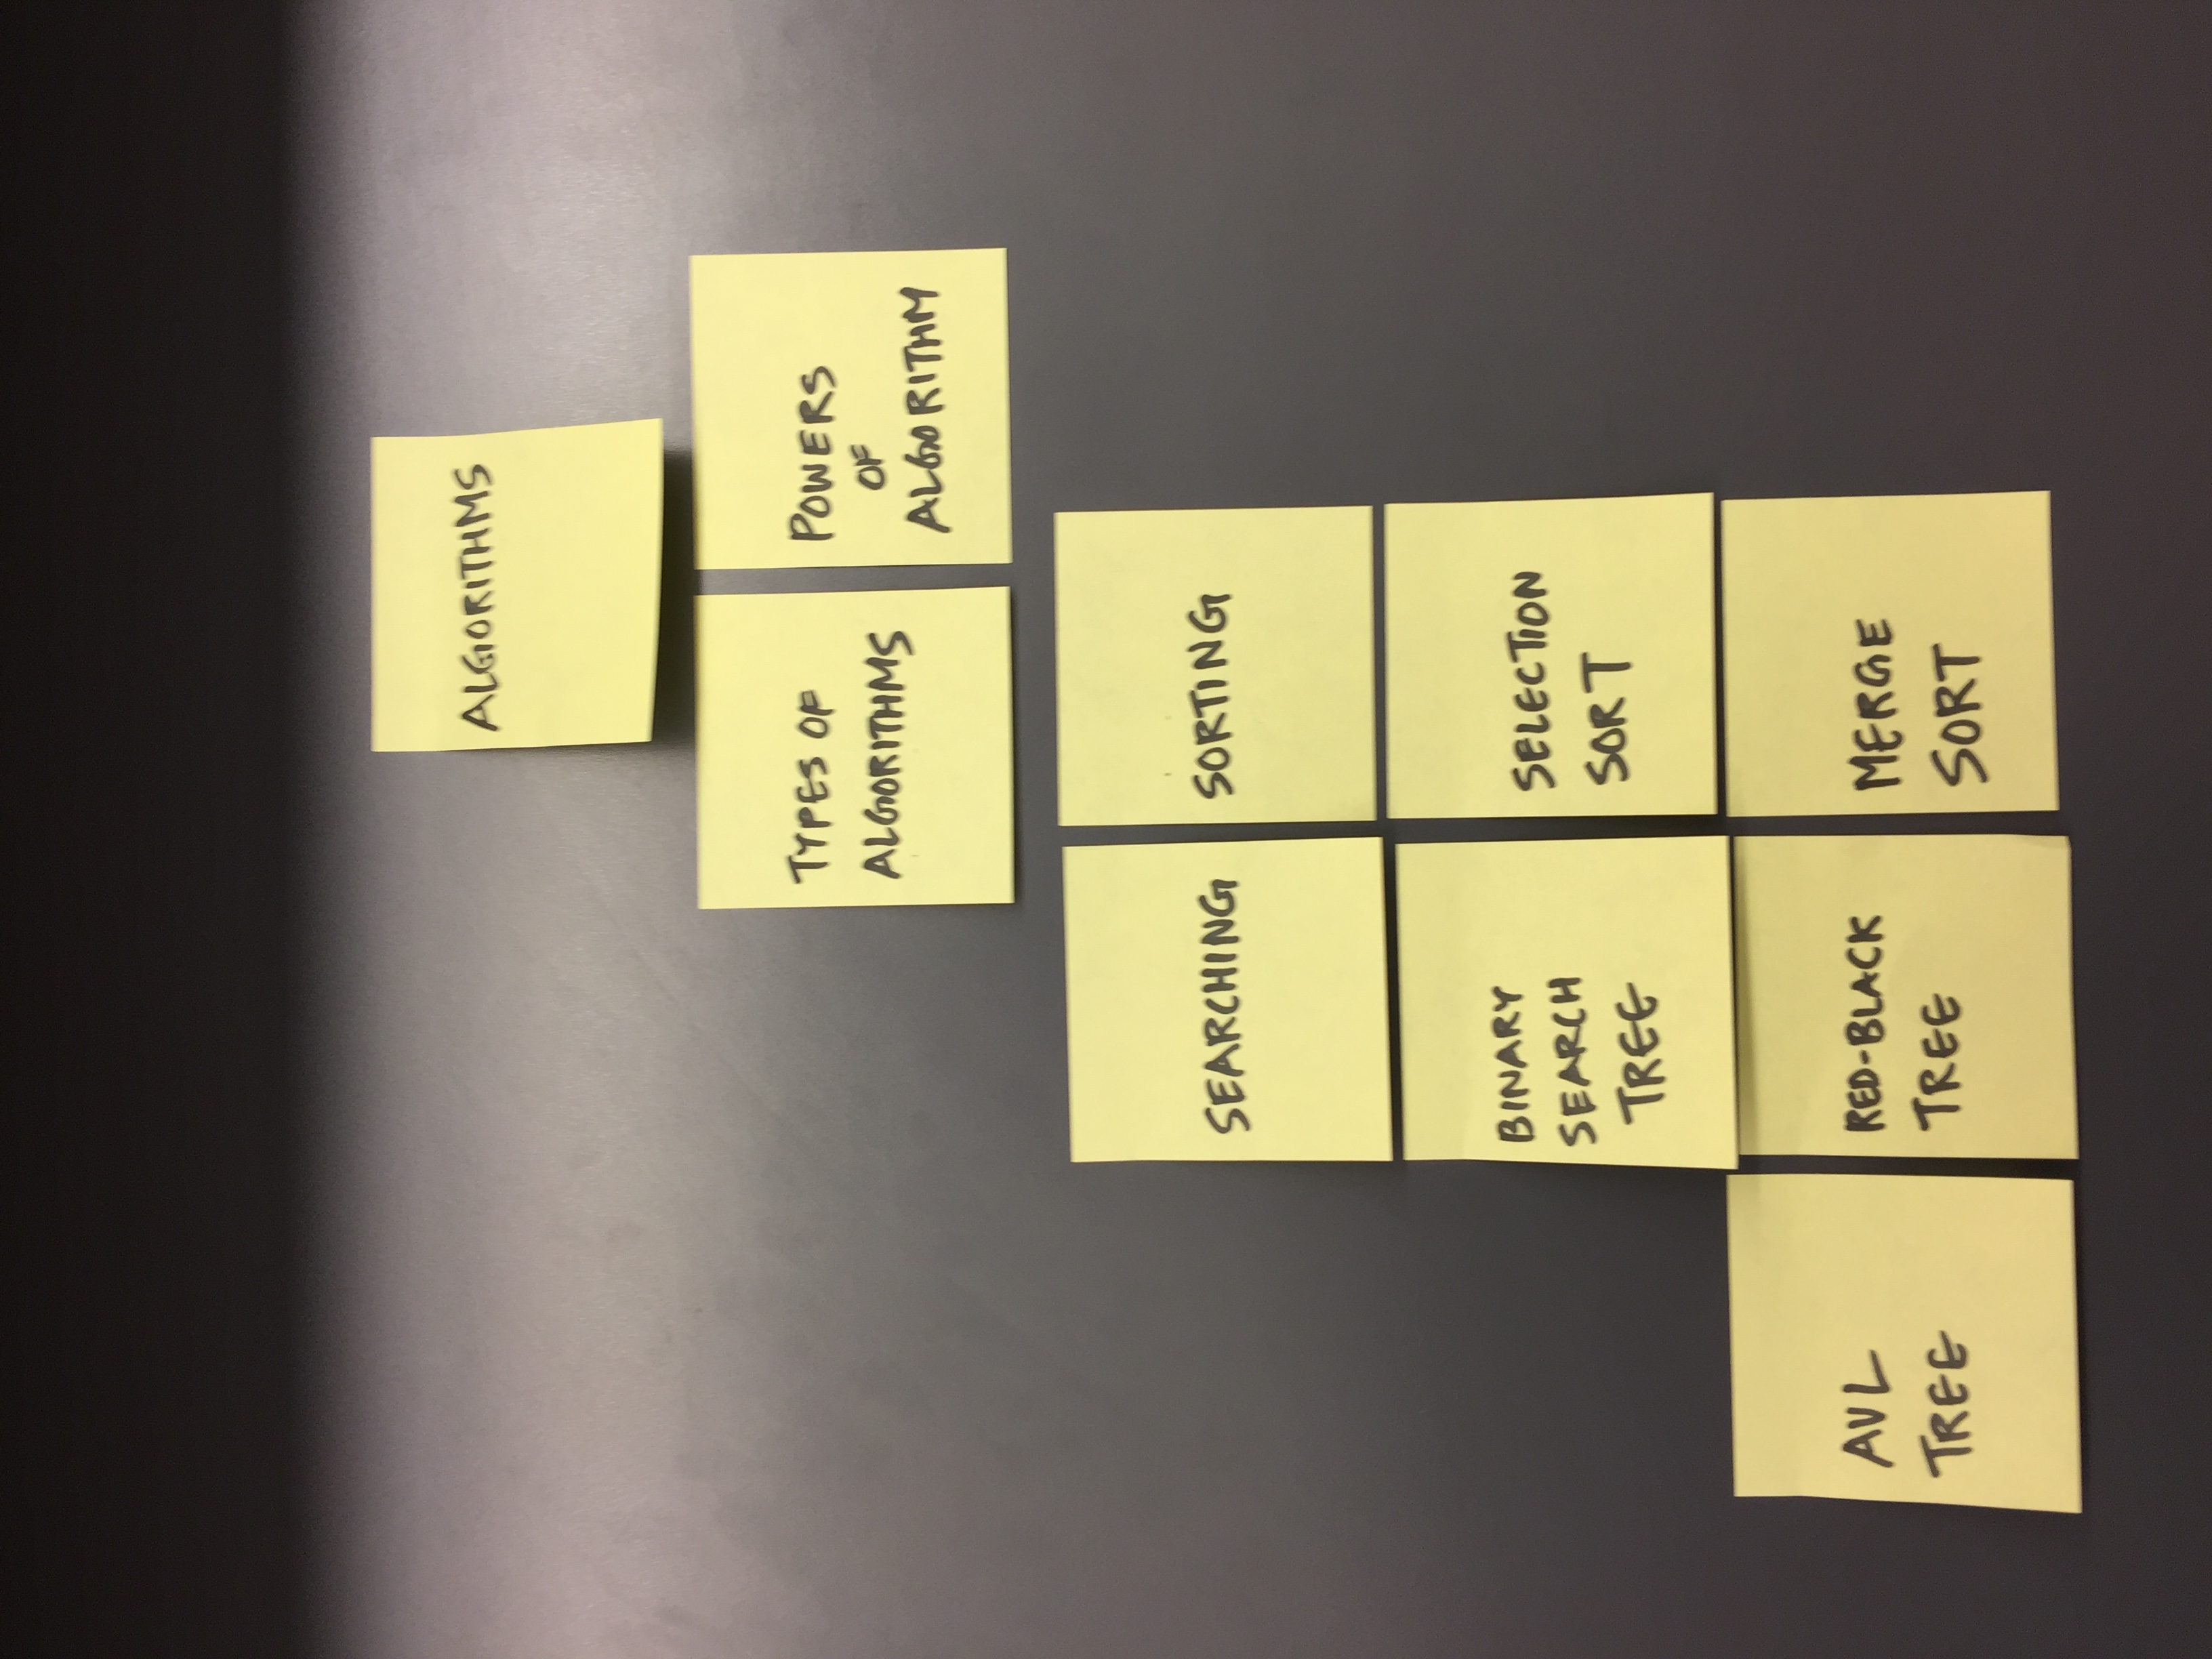 ALGORITHMS
TYPES OF
ALGORITHMS
POWERS
OF
ALGORITHM
SEARCHING
SORTING
BINARY
SEARCH
TREE
SELECTION
SORT
AVL
TREE
RED-BLACK
TREE
MERGE
SORT